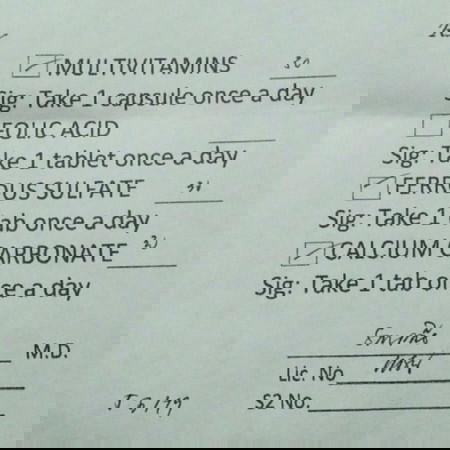 MULTIVITAMINS
Sig: Take 1 capsule once a day
FOLIC ACID
Sig: Take 1 tablet once a day
FERROUS SULFATE
Sig: Take 1 tab once a day
CALCIUM CARBONATE
Sig: Take 1 tab once a day
M.D.
Lic. No
S2 No.